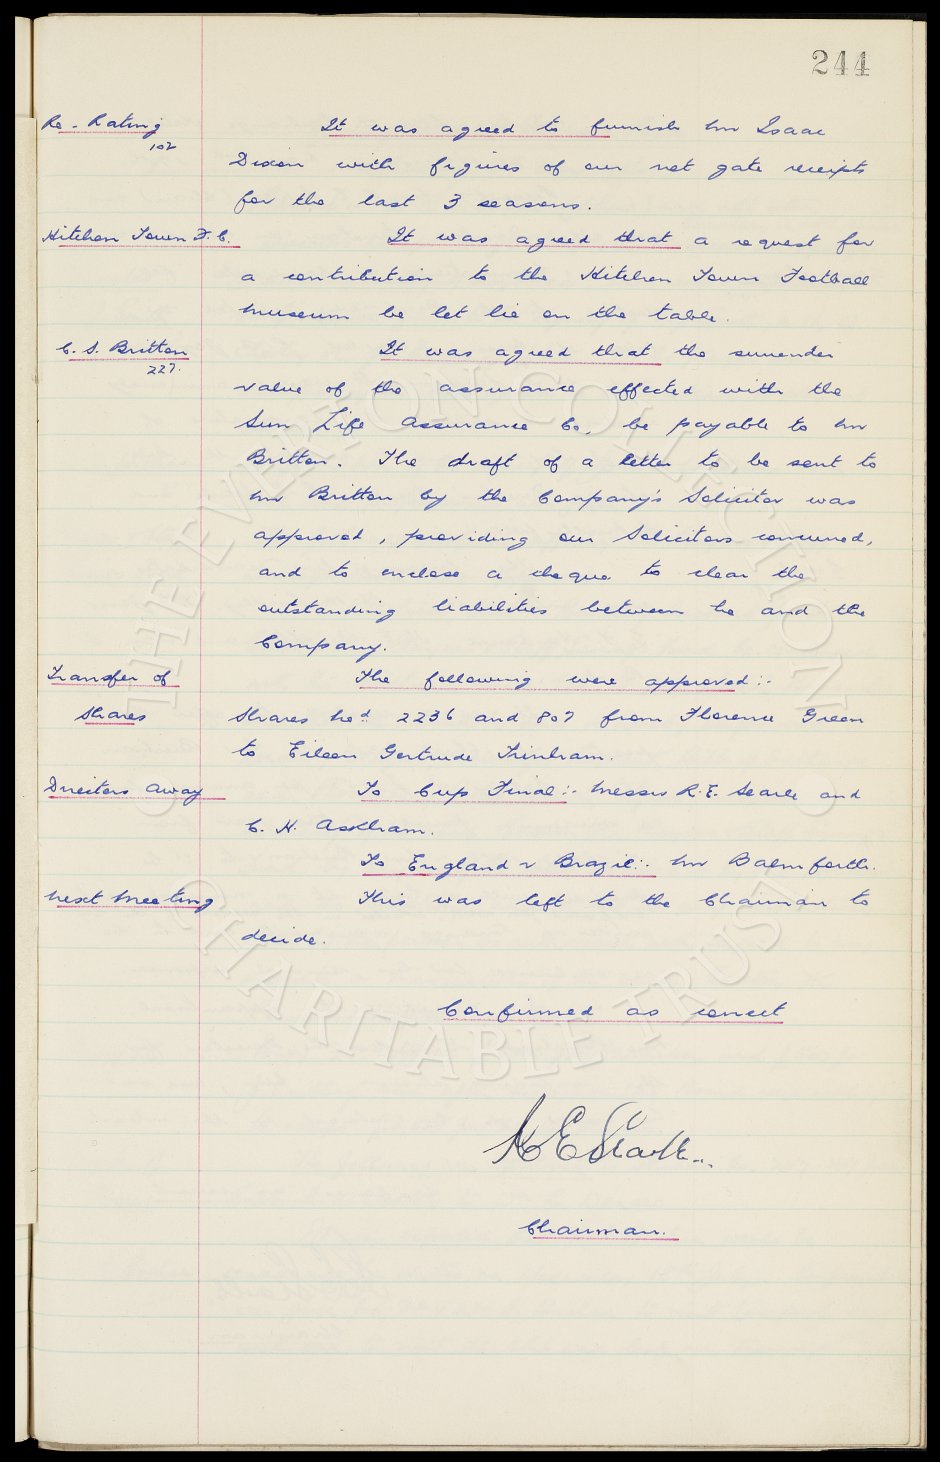 244
Re-Rating
102
It was agreed to furnish Mr Isaac
Dixon with figures of our net gate receipts
for the last 3 seasons.
Hitchen Town F.C.
It was agreed that a request for
a contribution to the Hitchen Town Football
Museum be let lie on the table.
C. S. Britton
227.
It was agreed that the surrender
value of the assurance effected with the
Sun Life Assurance Co, be payable to Mr
Britton. The draft of a letter to be sent to
Mr Britton by the Company's Solicitor was
approved, providing our Solicitors concurred,
and to enclose a cheque to clear the
outstanding liabilities between he and the
Company.
Transfer of
Shares
The following were approved:-
Shares Nod 2236 and 807 from Florence Green
to Eileen Gertrude
Directors Away
To Cup Final:- Messrs R.E. Searle and
C. H. Askham.
To England v Brazil:- Mr Balmforth.
Next Meeting
This was left to the Chairman to
decide.
Confirmed as correct
R E Searle
Chairman.
THE EVERTON COLLECTION
CHARITABLE TRUST